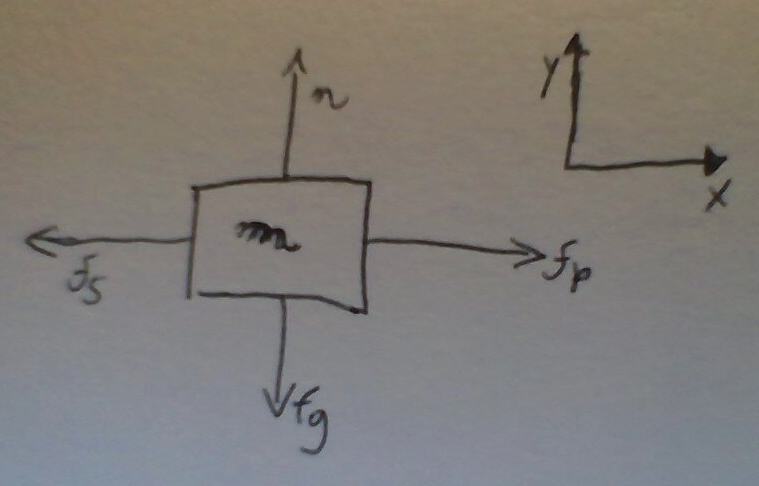 n
y
x
m
fs
fp
fg